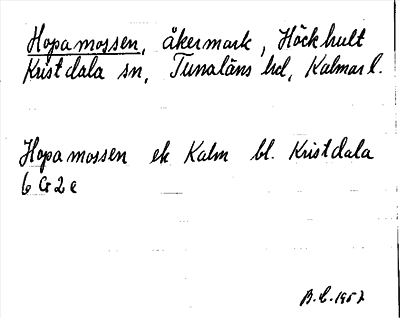 Hopamossen, åkermark, Höckhult
Kristdala sn, Tunaläns hd, Kalmar l.
Hopamossen ek Kalm bl. Kristdala
6 G 2 e
B.L. 1957